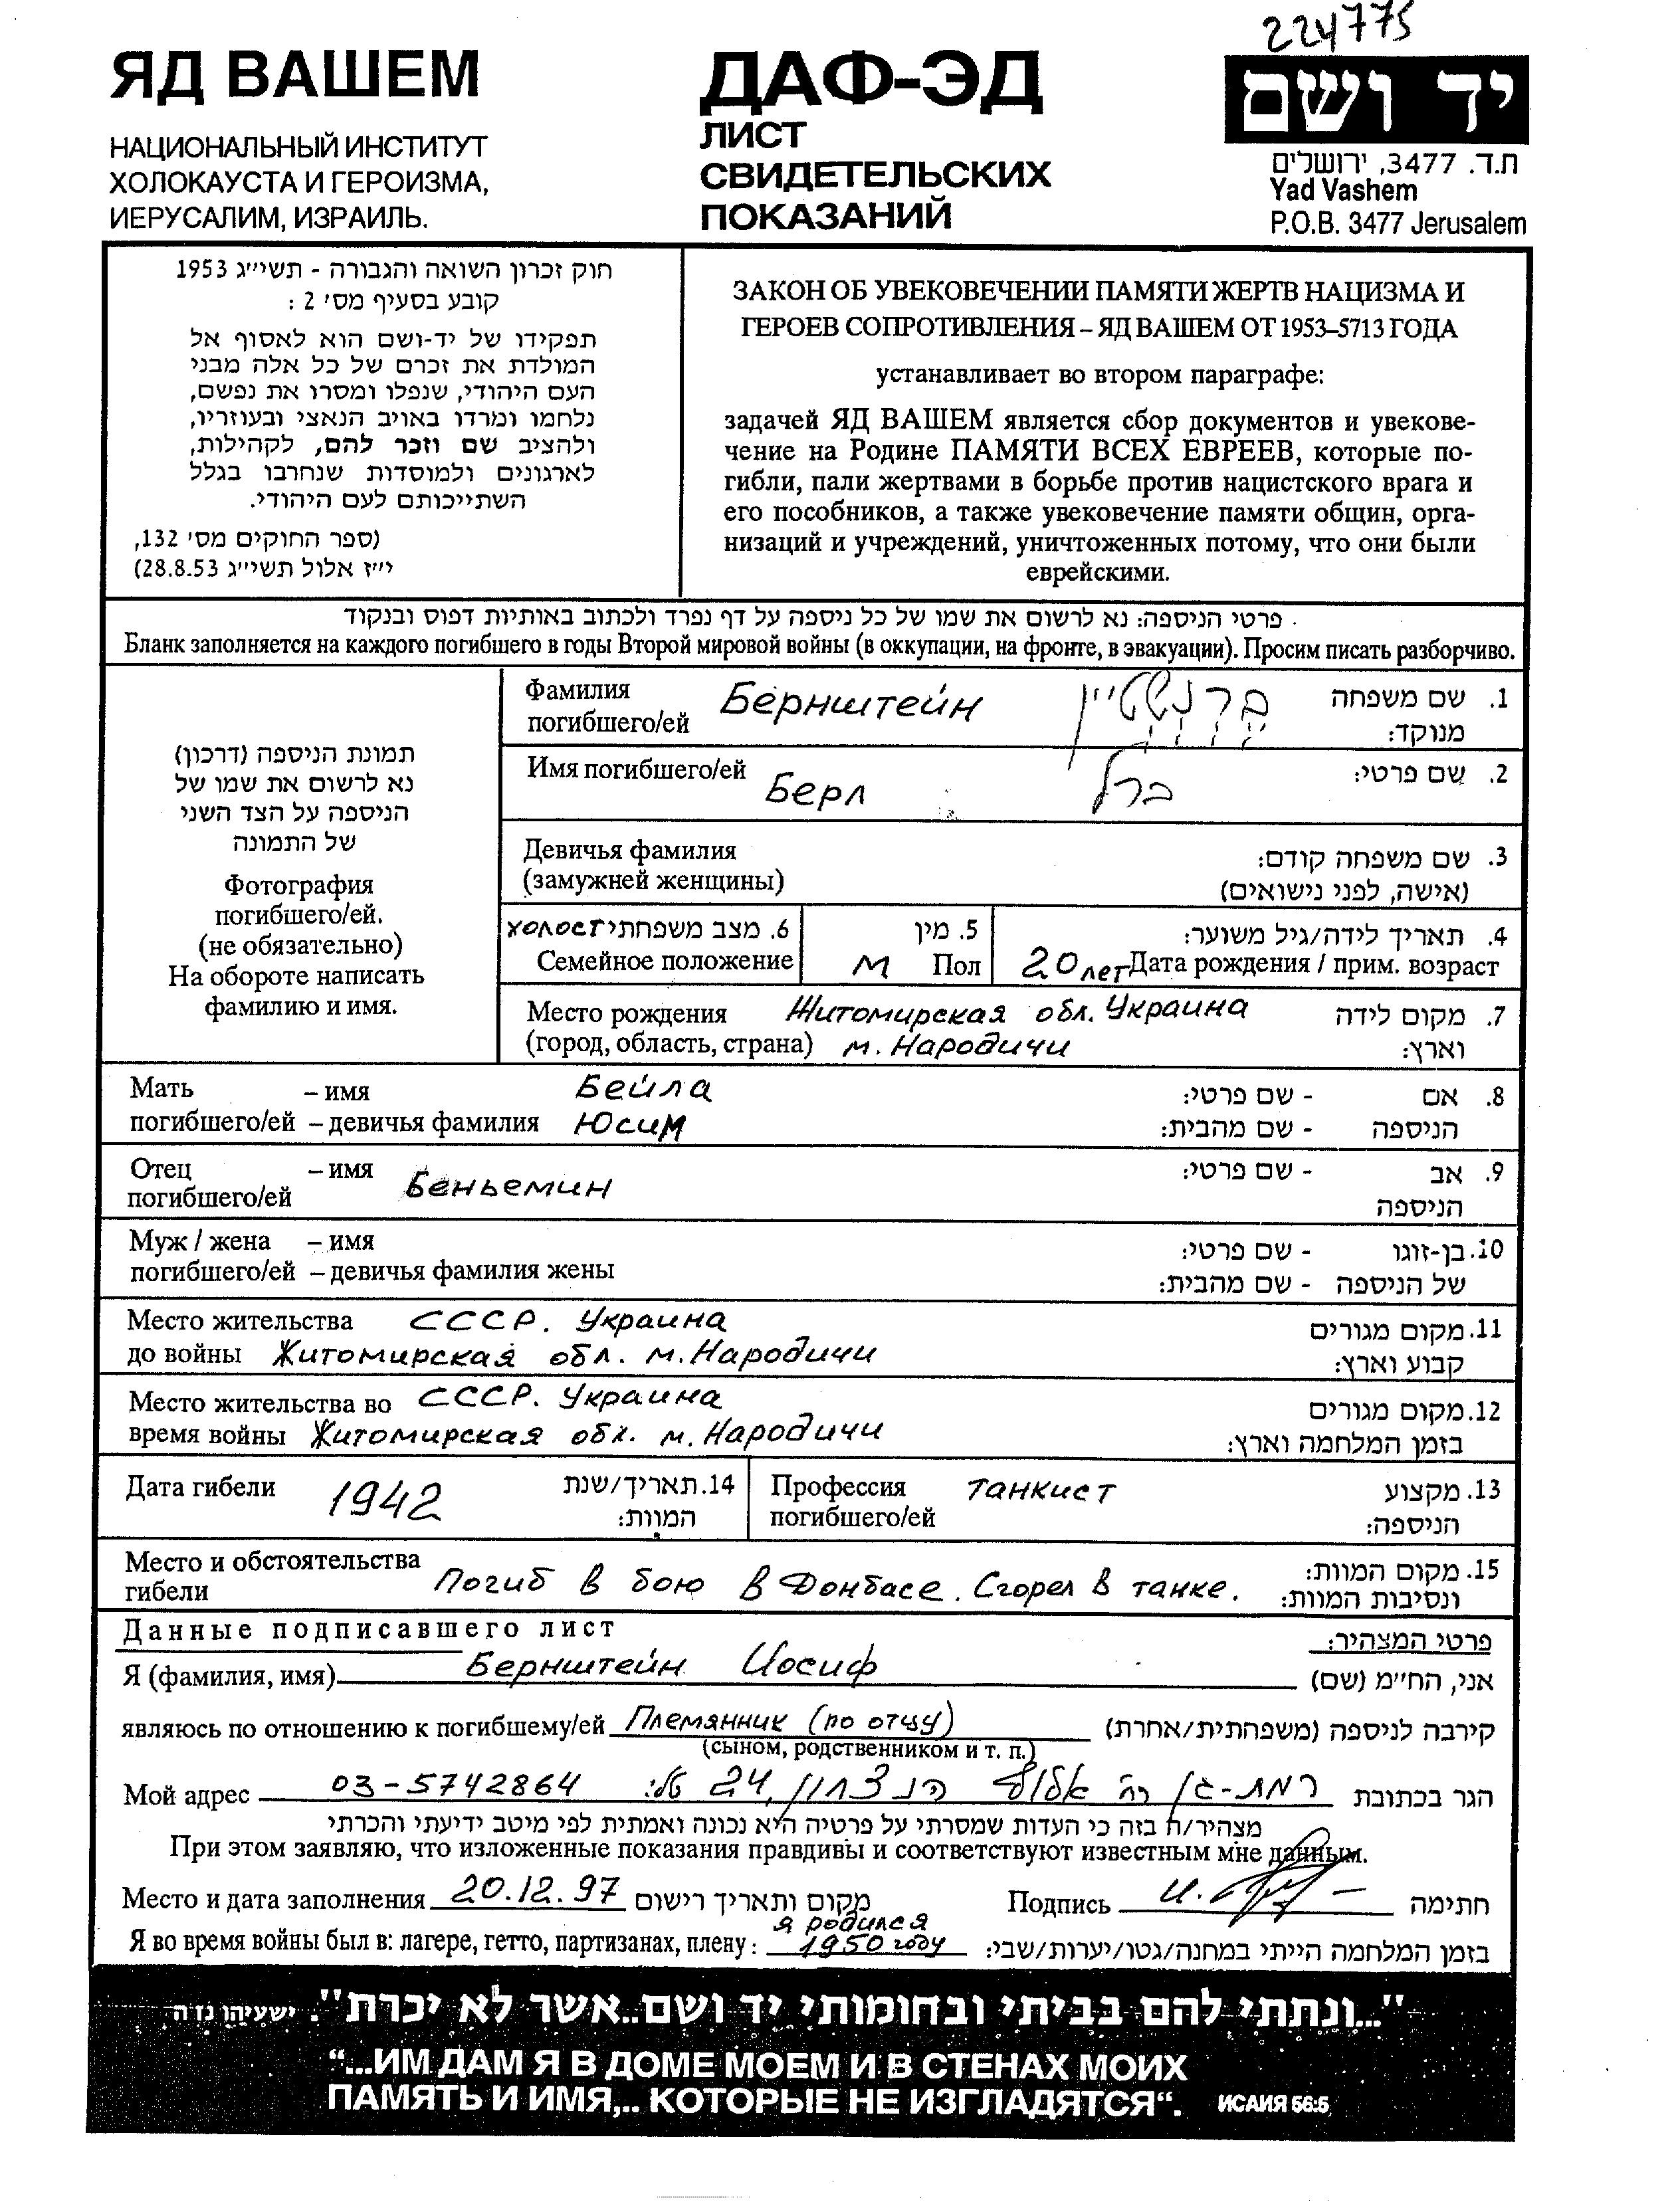 224775
ЯД ВАШЕМ
НАЦИОНАЛЬНЫЙ ИНСТИТУТ
ХОЛОКАУСТА И ГЕРОИЗМА,
ИЕРУСАЛИМ, ИЗРАИЛЬ.
ДАФ-ЭД
ЛИСТ
СВИДЕТЕЛЬСКИХ
ПОКАЗАНИЙ
יד ושם
ת.ד. 3477, ירושלים
Yad Vashem
P.O.B. 3477 Jerusalem
חוק זכרון השואה והגבורה - תשי״ג 1953
קובע בסעיף מס׳ 2 :
תפקידו של יד-ושם הוא לאסוף אל
המולדת את זכרם של כל אלה מבני
העם היהודי, שנפלו ומסרו את נפשם,
נלחמו ומרדו באויב הנאצי ובעוזריו,
ולהציב שם וזכר להם, לקהילות,
לארגונים ולמוסדות שנחרבו בגלל
השתייכותם לעם היהודי.
(ספר החוקים מס׳ 132,
י״ז אלול תשי״ג 28.8.53)
ЗАКОН ОБ УВЕКОВЕЧЕНИИ ПАМЯТИ ЖЕРТВ НАЦИЗМА И
ГЕРОЕВ СОПРОТИВЛЕНИЯ – ЯД ВАШЕМ ОТ 1953–5713 ГОДА
устанавливает во втором параграфе:
задачей ЯД ВАШЕМ является сбор документов и увекове-
чение на Родине ПАМЯТИ ВСЕХ ЕВРЕЕВ, которые по-
гибли, пали жертвами в борьбе против нацистского врага и
его пособников, а также увековечение памяти общин, орга-
низаций и учреждений, уничтоженных потому, что они были
еврейскими.
פרטי הניספה: נא לרשום את שמו של כל ניספה על דף נפרד ולכתוב באותיות דפוס ובנקוד
Бланк заполняется на каждого погибшего в годы Второй мировой войны (в оккупации, на фронте, в эвакуации). Просим писать разборчиво.
תמונת הניספה (דרכון)
נא לרשום את שמו של
הניספה על הצד השני
של התמונה
Фотография
погибшего/ей.
(не обязательно)
На обороте написать
фамилию и имя.
Фамилия
погибшего/ей Бернштейн ברנשטיין
1. שם משפחה
מנוקד:
Имя погибшего/ей Берл ברל 2. שם פרטי:
Девичья фамилия
(замужней женщины)
3. שם משפחה קודם:
(אישה, לפני נישואים)
6. מצב משפחתי холост
Семейное положение
5. מין
М Пол
4. תאריך לידה/גיל משוער:
20 лет Дата рождения / прим. возраст
Место рождения Житомирская обл. Украина
(город, область, страна) м. Народичи
7. מקום לידה
וארץ:
Мать – имя Бейла
погибшего/ей – девичья фамилия Юсим
8. אם - שם פרטי:
הניספה - שם מהבית:
Отец – имя
погибшего/ей Беньемин
9. אב - שם פרטי:
הניספה
Муж / жена – имя
погибшего/ей – девичья фамилия жены
10. בן-זוגו - שם פרטי:
של הניספה - שם מהבית:
Место жительства СССР. Украина
до войны Житомирская обл. м. Народичи
11. מקום מגורים
קבוע וארץ:
Место жительства во СССР. Украина
время войны Житомирская обл. м. Народичи
12. מקום מגורים
בזמן המלחמה וארץ:
Дата гибели 1942
14. תאריך/שנת
המוות:
Профессия танкист
погибшего/ей
13. מקצוע
הניספה:
Место и обстоятельства
гибели Погиб в бою в Донбасе. Сгорел в танке.
15. מקום המוות:
ונסיבות המוות:
Данные подписавшего лист
פרטי המצהיר:
Я (фамилия, имя) Бернштейн Иосиф אני, הח״מ (שם)
являюсь по отношению к погибшему/ей Племянник (по отцу) קירבה לניספה (משפחתית/אחרת)
(сыном, родственником и т. п.)
Мой адрес 03-5742864 טל: 24, רמת-גן רח הנצחון הגר בכתובת
מצהיר/ה בזה כי העדות שמסרתי על פרטיה היא נכונה ואמתית לפי מיטב ידיעתי והכרתי
При этом заявляю, что изложенные показания правдивы и соответствуют известным мне данным.
Место и дата заполнения 20.12.97 מקום ותאריך רישום Подпись חתימה
я родился
Я во время войны был в: лагере, гетто, партизанах, плену: 1950 году בזמן המלחמה הייתי במחנה/גטו/יערות/שבי:
"...ונתתי להם בביתי ובחומותי יד ושם..אשר לא יכרת". ישעיהו נו ה
“...ИМ ДАМ Я В ДОМЕ МОЕМ И В СТЕНАХ МОИХ
ПАМЯТЬ И ИМЯ,.. КОТОРЫЕ НЕ ИЗГЛАДЯТСЯ“. ИСАИЯ 56:5